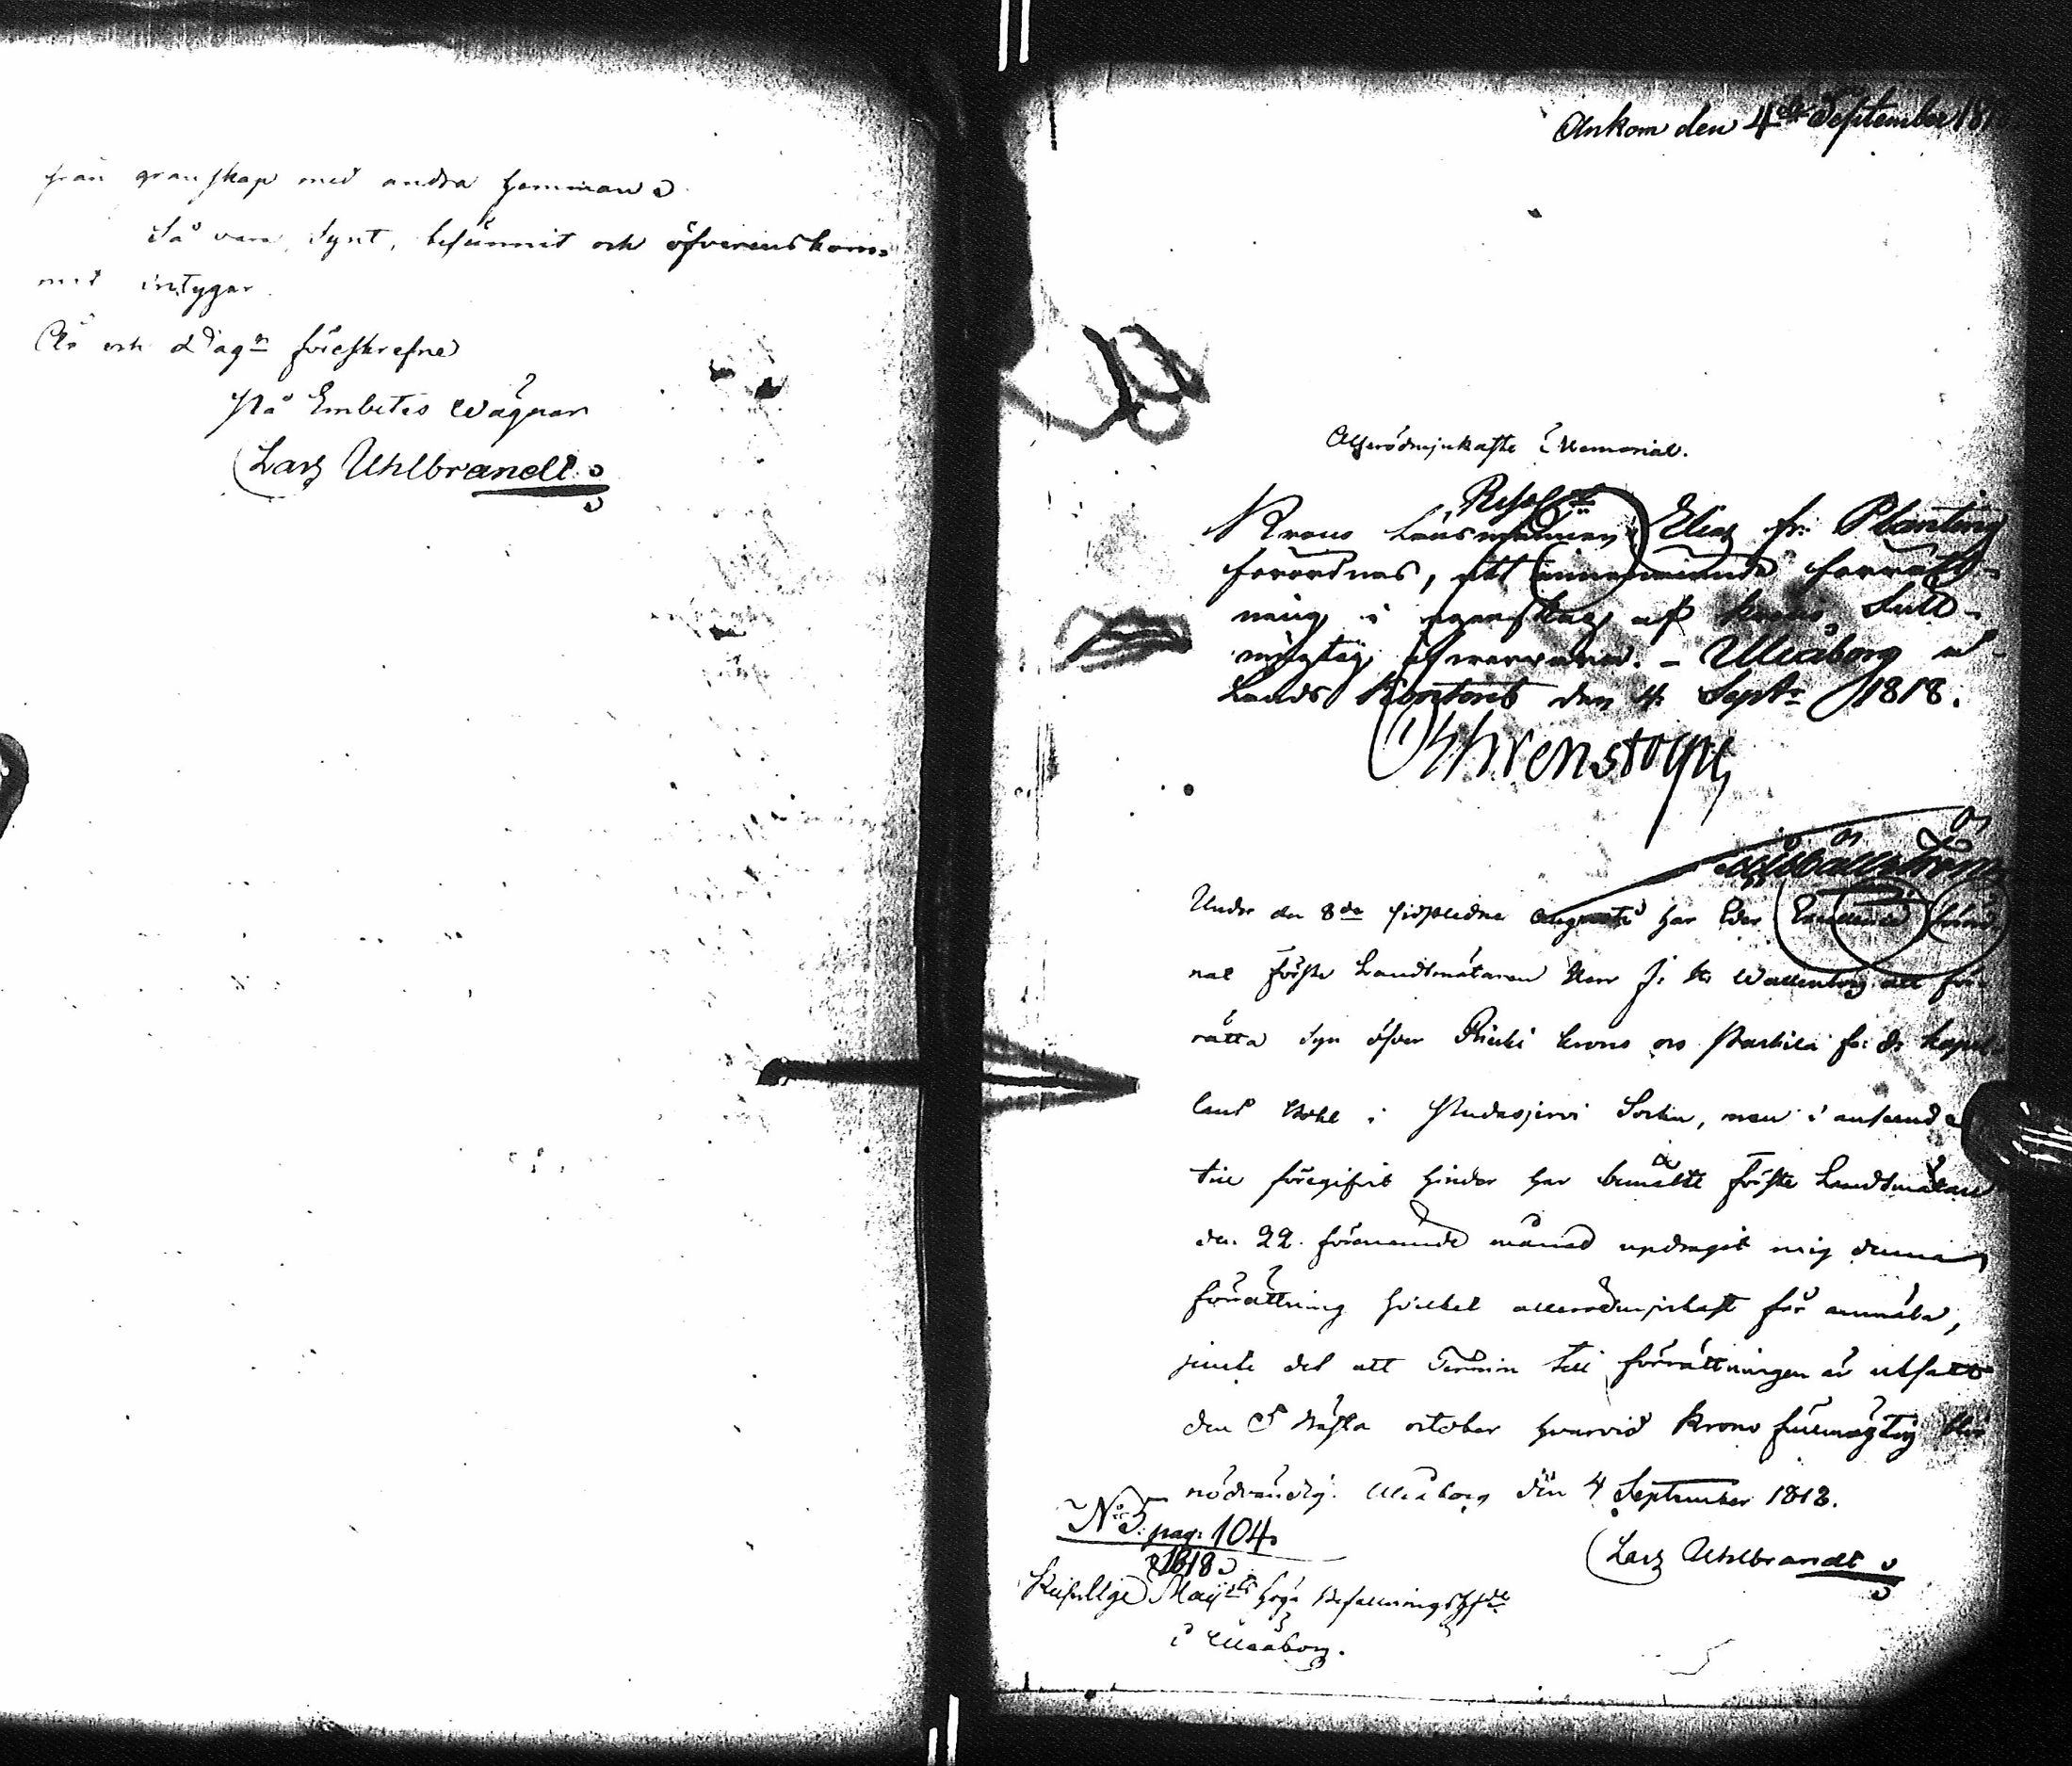 från granskap med andra hemman
Så vara Synt, befunnit och öfverenskom=
mit intygar
År och Dagn föreskrefne
På Embetes Wägnar
Lars Uhlbrandt
Ankom den 4de September 18
Allerödmjukaste Memorial.
Resol:
Krono Länsmannen Elias Fr: Planting
förordnas, att förrätt-
ning i egenskap af Krono full-
mägtig öfvervara. – Uleåborg å
Lands Kontoret den 4 Septr 1818.
Ehrenstolpe
Under den 8de sistledne Augusti har Eder Excellence förord
nat förste Landtmätaren Herr J: Wallenborg att för-
rätta Syn öfver Krono
i Pudasjervi Sockn, men i anseende
till föregifvit hinder har bemälte förste Landtmätare
den 22 förenämnde månad updragit mig denna
förrättning hvilket allerödmjukast får anmäla,
jemte det att Termin till förrättningen är utsatt
den nästa october hvarvid Krono fullmägtig blir
nödvändig. Uleåborg den 4 September 1818.
Lars Uhlbrandt
No 5. pag: 104.
1818
Kejserlige Majts höga Befallningshfde
i Uleåborg.